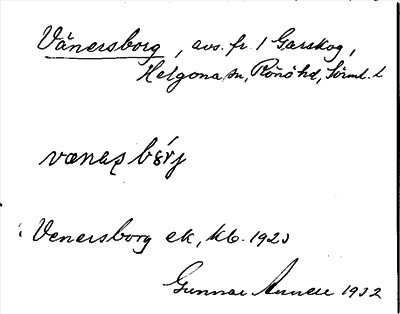 Vänersborg, avs. fr. 1 Garskog,
Helgona sn, Rönö hd, Sörml. l
vænaʂ bɛ́rj
Venersborg ek, kb. 1923
Gunnar 1932